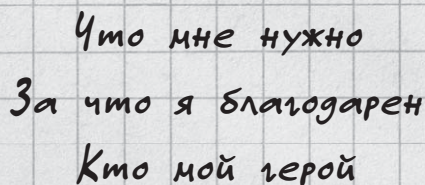 Что мне нужно
За что я благодарен
Кто мой герой